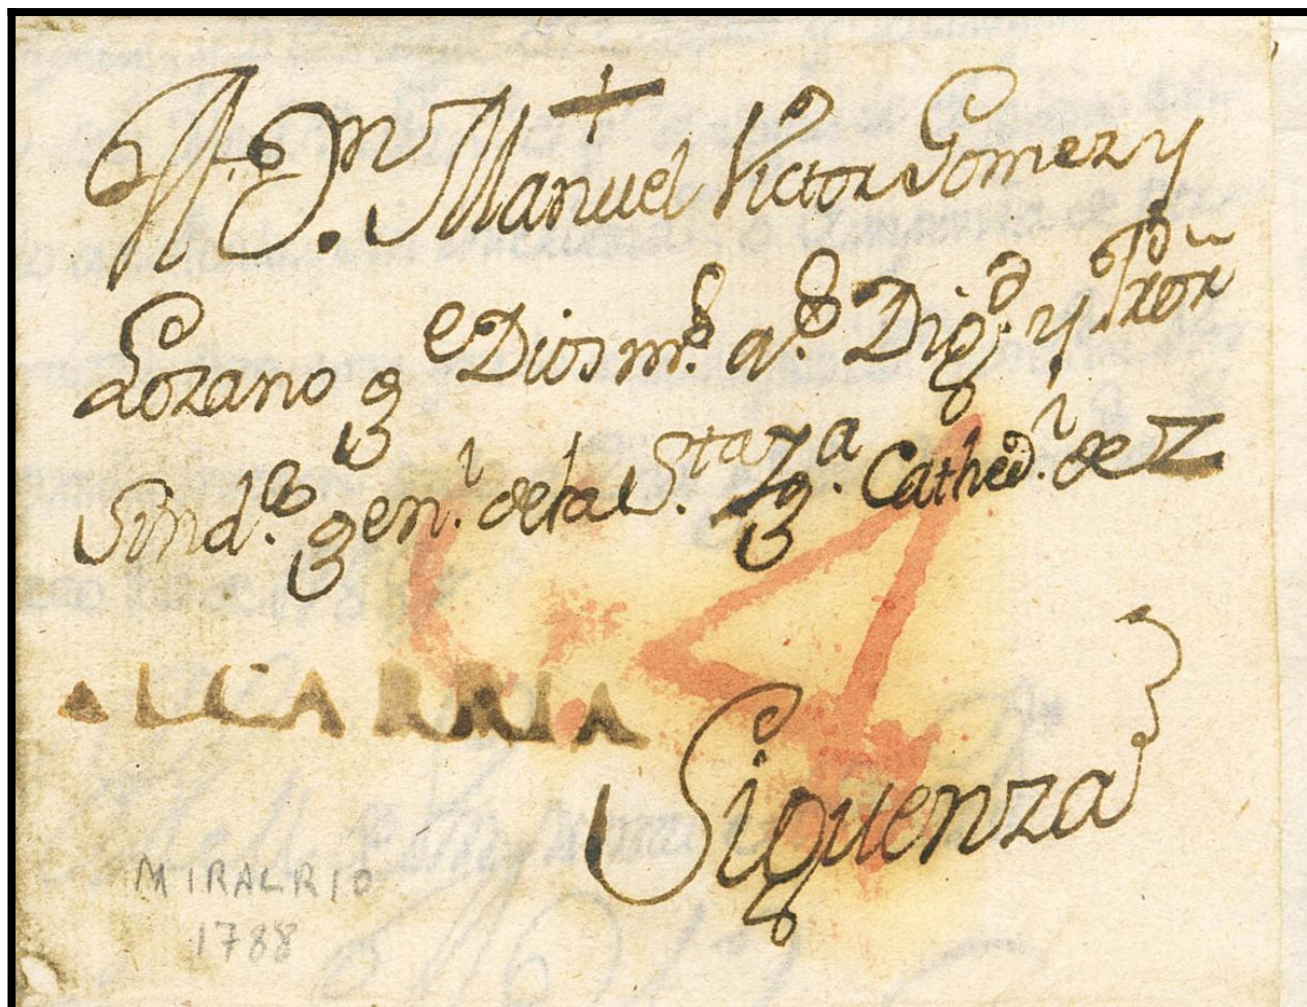 +
A D.n Manuel Victor Gomez y
Lozano q.e Dios m.s a.s Dig.o y Pror
Sind.co gen.l de la S.ta Yg.a Cathed.l de
ALCARRIA
4
Siguenza
MIRALRIO
1788